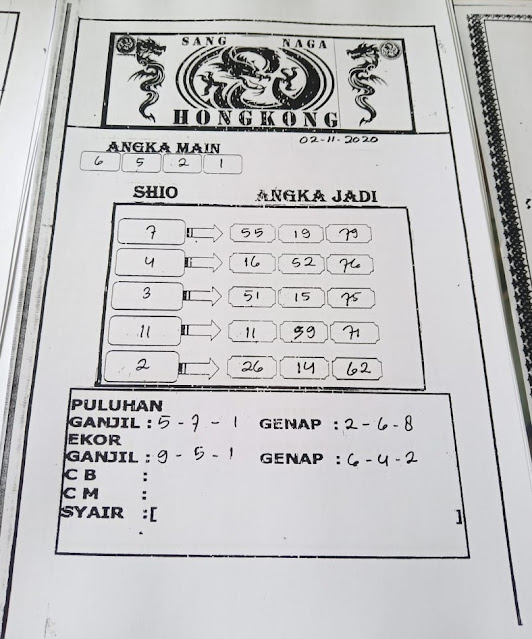 SANG NAGA
HONGKONG
02-11-2020
ANGKA MAIN
6 5 2 1
SHIO ANGKA JADI
7 55 19 79
4 16 52 76
3 51 15 75
11 11 59 71
2 26 14 62
PULUHAN
GANJIL : 5 - 7 - 1 GENAP : 2 - 6 - 8
EKOR
GANJIL : 9 - 5 - 1 GENAP : 6 - 4 - 2
C B :
C M :
SYAIR :[ ]